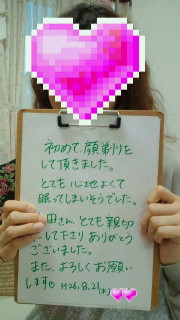 初めて顔剃りを
して頂きました。
とても心地よくて
眠ってしまいそうでした。
田さん、とても親切
して下さりありがとう
ございました。
また、よろしくお願い
します。H26.8.21(木)